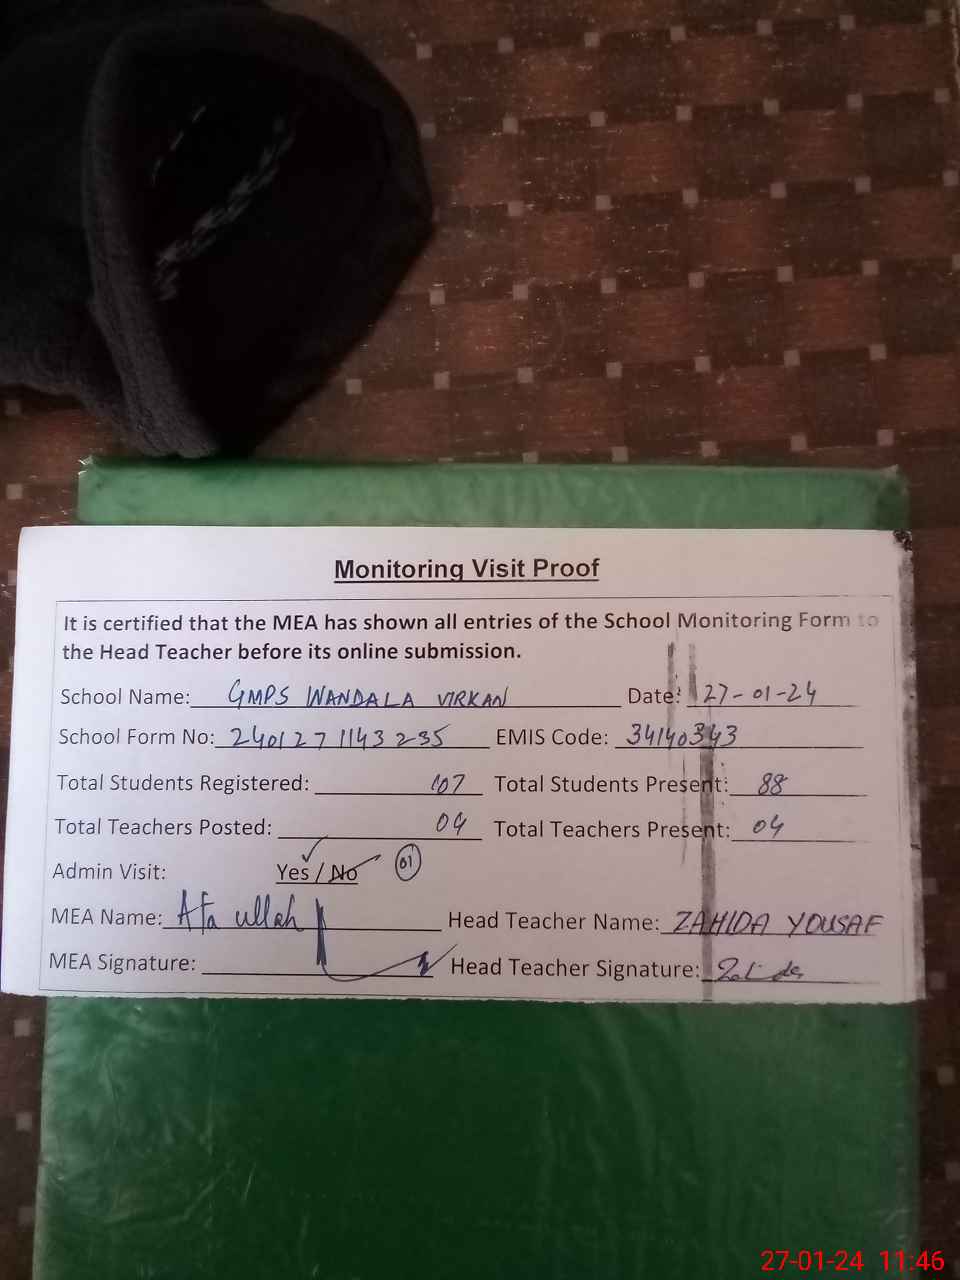 Monitoring Visit Proof
It is certified that the MEA has shown all entries of the School Monitoring Form to
the Head Teacher before its online submission.
School Name: GMPS WANDALA VIRKAN Date: 27-01-24
School Form No: 2401271143235 EMIS Code: 34140343
Total Students Registered: 107 Total Students Present: 88
Total Teachers Posted: 04 Total Teachers Present: 04
Admin Visit: Yes / No 01
MEA Name: Ata ullah Head Teacher Name: ZAHIDA YOUSAF
MEA Signature: Head Teacher Signature:
27-01-24 11:46